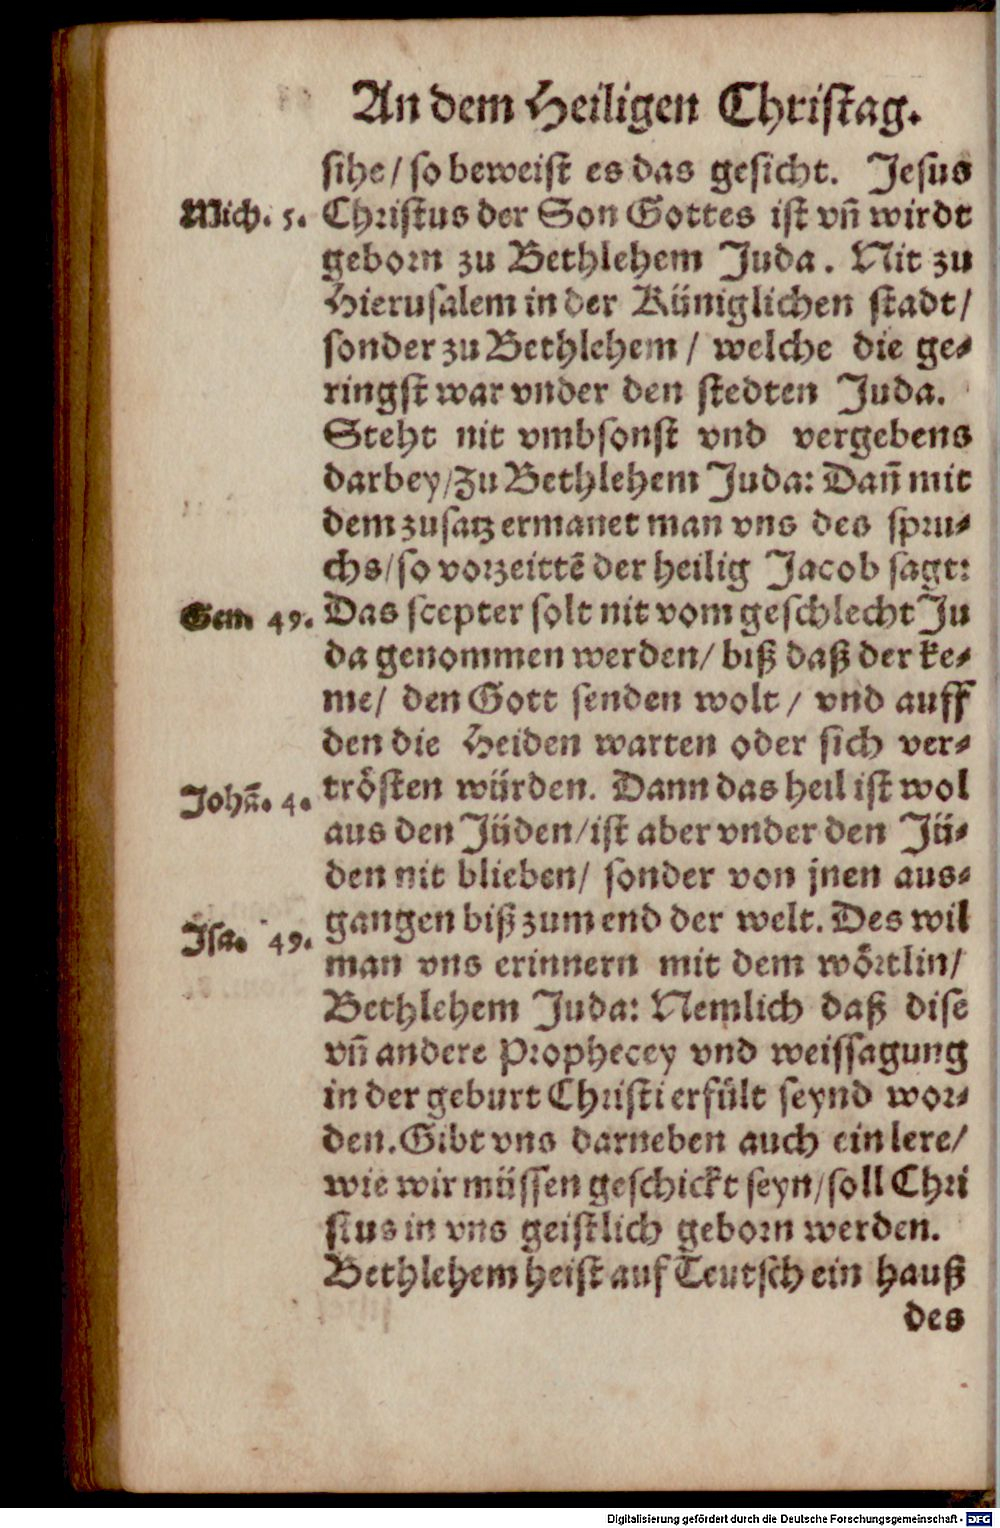 An dem Heiligen Christag.
sihe/ so beweist es das gesicht. Jesus
Mich. 5. Christus der Son Gottes ist vñ wirdt
geborn zu Bethlehem Juda. Nit zu
Hierusalem in der Küniglichen stadt/
sonder zu Bethlehem/ welche die ge⸗
ringst war vnder den stedten Juda.
Steht nit vmbsonst vnd vergebens
darbey/ zu Bethlehem Juda: Dañ mit
dem zusatz ermanet man vns des spru⸗
chs/ so vorzeittẽ der heilig Jacob sagt:
Gen 49. Das scepter solt nit vom geschlecht Ju
da genommen werden/ biß daß der ke⸗
me/ den Gott senden wolt/ vnd auff
den die Heiden warten oder sich ver⸗
Johñ. 4. trösten würden. Dann das heil ist wol
aus den Jüden/ ist aber vnder den Jü⸗
den nit blieben/ sonder von jnen aus⸗
Isa. 49. gangen biß zum end der welt. Des wil
man vns erinnern mit dem wörtlin/
Bethlehem Juda: Nemlich daß dise
vñ andere Prophecey vnd weissagung
in der geburt Christi erfült seynd wor⸗
den. Gibt vns darneben auch ein lere/
wie wir müssen geschickt seyn/ soll Chri
stus in vns geistlich geborn werden.
Bethlehem heist auf Teutsch ein hauß
des
Digitalisierung gefördert durch die Deutsche Forschungsgemeinschaft - DFG